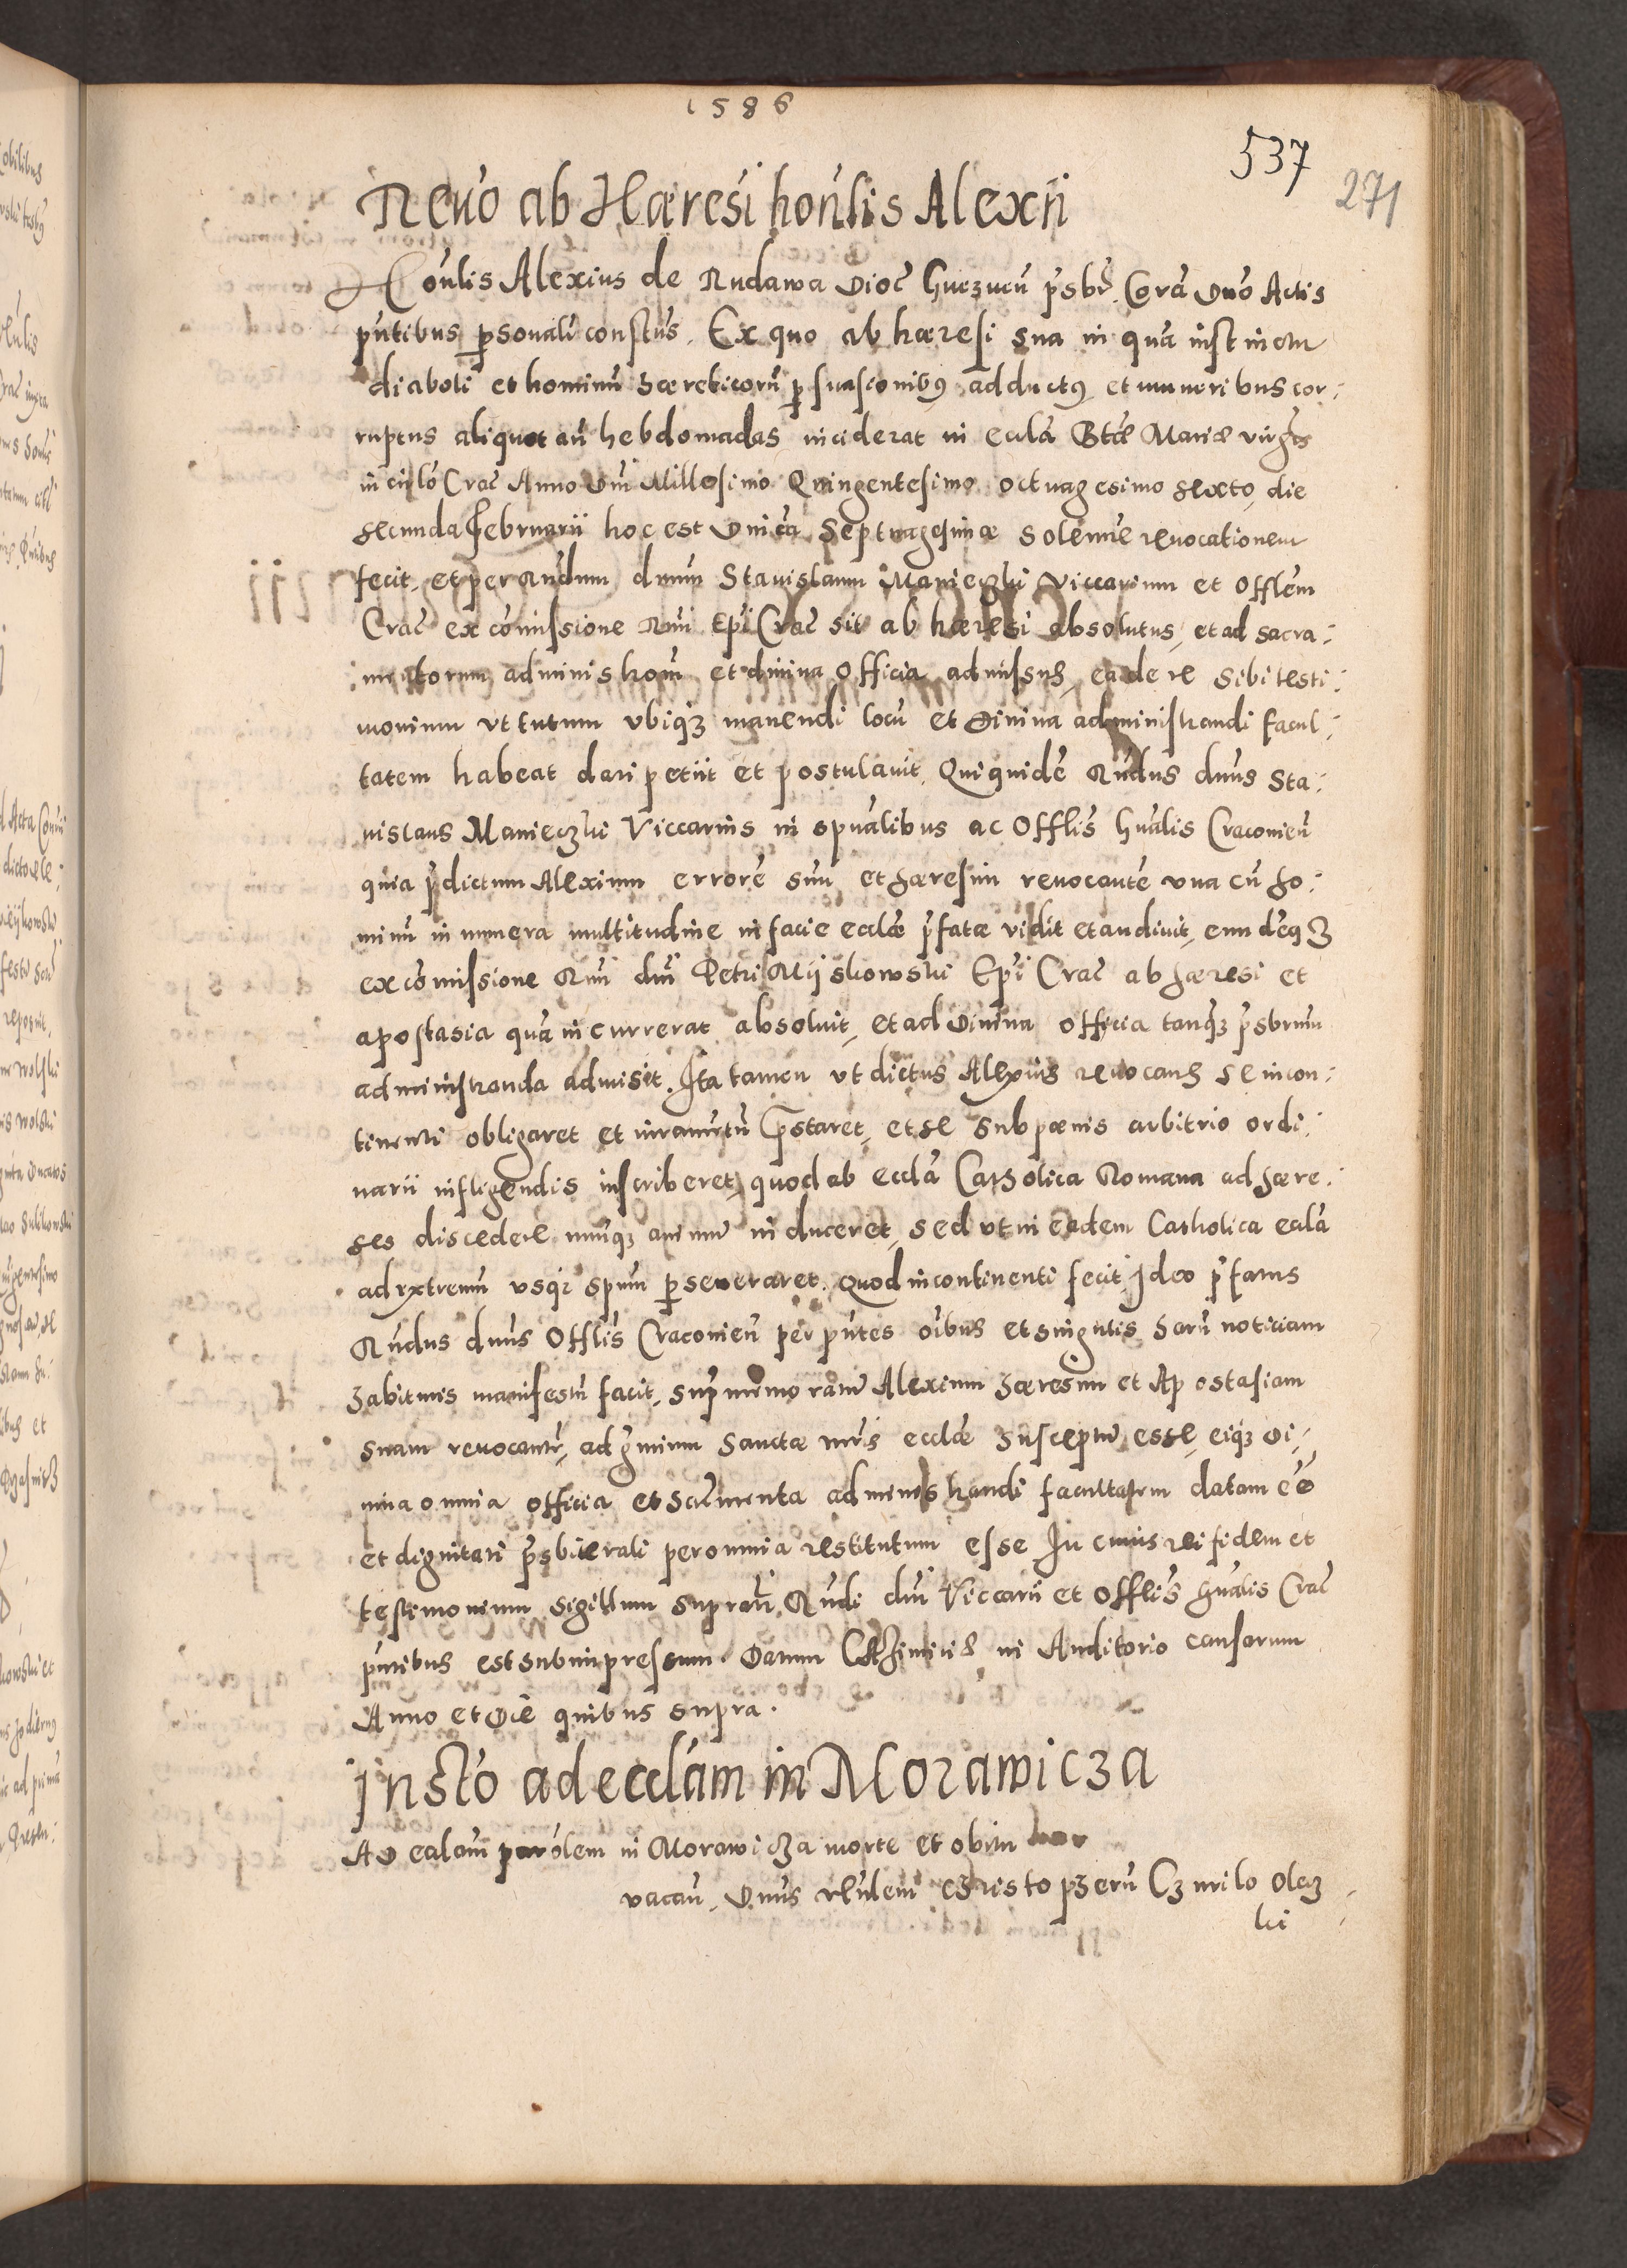 1586
537
271
Reuo ab Hæresi hon̄lis Alexii
Honlis Alexius de Rudawa Dioc̄ Gneznen̄ p̄sbr̄. Corā Dno Actis
pn̄tibus p̱sonalr̄ constūs. Ex quo ab hæresi sua in quā instinctu
diaboli et hominū hæreticorū p̱suasionibꝰ adductꝰ et muneribus cor:
ruptus aliquot an̄ hebdomadas inciderat in ecclā Btæ Mariæ virgīs
in circ̄lo Crac̄ Anno Dni Millesimo Quingentesimo octuagesimo sexto, die
secunda Februarii hoc est Dnica Septuagesimæ solemnē reuocationem
fecit, et per Rn̄dum dnum Stanislaum Manieczki Viccarium et Offlēm
Crac̄ ex com̄issione Rmi Epi Crac̄ sit ab hæresi absolutus, et ad sacra:
mentorum administrōm et diuina Officia admissus, ea de re sibi testi:
monium vt tutum vbiqꝫ manendi locū et Diuina administrandi facul:
tatem habeat dari petiit et postulauit. Qui quidē Rn̄dus dnus Sta:
nislaus Manieczki Viccarius in spūalibus ac Offlis Gnālis Cracouien̄
quia p̄dictum Alexium errorē suū et hæresim reuocantē vna cū ho:
minū innumera multitudine in facie ecclæ p̄fatæ vidit et audiuit, eundēqꝫ
ex com̄issione Rmi dni Petri Mijskowski Epi Crac̄ ab hæresi et
apostasia quā incurrerat absoluit, et ad Diuina officia tanqꝫ p̄sbrum
administranda admisit. Ita tamen vt dictus Alexius reuocans se incon:
tinenti obligaret et iuramētū p̄staret, et se sub pœnis arbitrio ordi:
narii infligendis inscriberet, quod ab ecclā Catholica Romana ad hære:
ses discedere nunqꝫ animū induceret, sed vt in eadem Catholica ecclā
ad extremū vsqꝫ spum p̱seueraret. Quod incontinenti fecit, Ideo p̄fatus
Rn̄dus dnus Offlis Cracouien̄ per pn̄tes oībus et singulis harū noticiam
habituris manifestū facit, supr̄memoratū Alexium hæresim et Apostasiam
suam reuocantē, ad gr̄mium Sanctæ mr̄is ecclæ susceptū esse, eiqꝫ Di:
uina omnia officia et Sacr̄menta administrandi facultatem datam eē
et dignitati p̄sbiterali per omnia restitutum esse In cuius rei fidem et
testimonium sigillum suprati Rn̄di dni Viccarii et Offlis Gnālis Crac̄
pn̄tibus est subimpressum. Datum Cazimiriæ in Auditorio causarum
Anno et Die quibus supra.
Insto ad ecclām in Morawicza
Ad ecclam parōlem in Morawicza morte et obitu
vacan̄, Dnus Christopherū Czurilo Olecz
ki